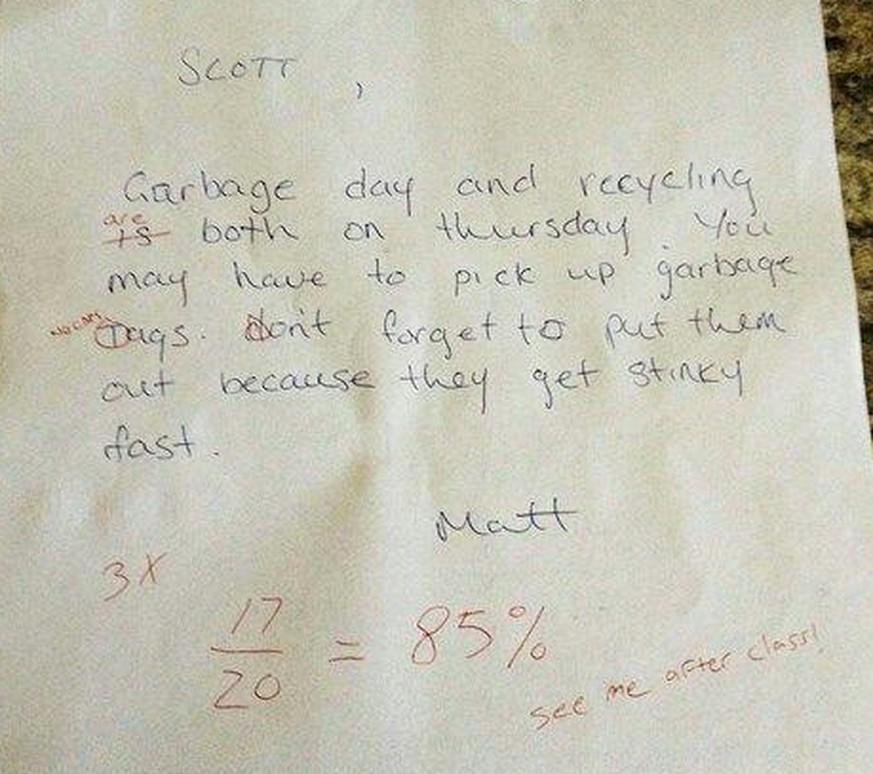 SCOTT ,
Garbage day and recycling
are
is both on thursday. You
may have to pick up garbage
no caps Bags. Don't forget to put them
out because they get stinky
fast.
Matt
3X
17
20 = 85%
see me after class!